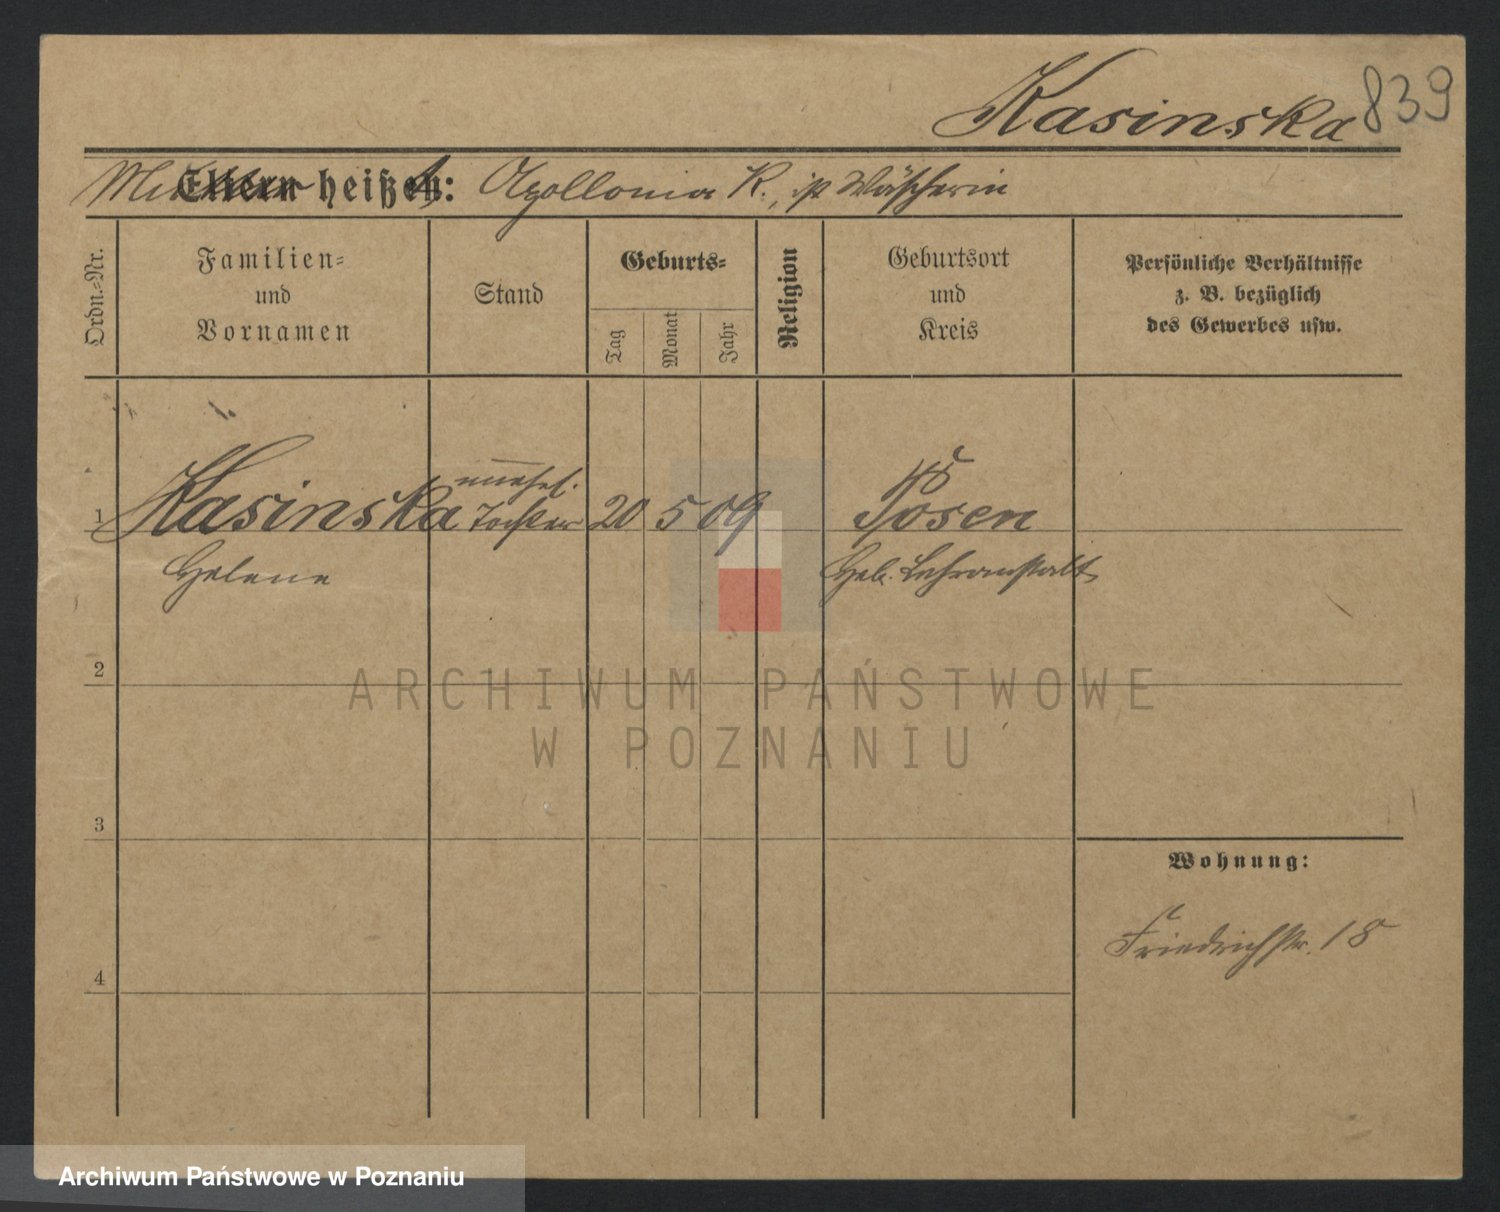 Kasinska 839
Mutter Eltern heißt: Apollonia K., ist Wäscherin
Ordn.-Nr.
Familien-
und
Vornamen
Stand
Geburts-
Tag
Monat
Jahr
Religion
Geburtsort
und
Kreis
Persönliche Verhältnisse
z. B. bezüglich
des Gewerbes usw.
unehel.
1 Kasinska Tochter 20 5 09 Posen
Helene Heb. Lehranstalt
2
ARCHIWUM PAŃSTWOWE
W POZNANIU
3
Wohnung:
Friedrichstr. 18
4
Archiwum Państwowe w Poznaniu